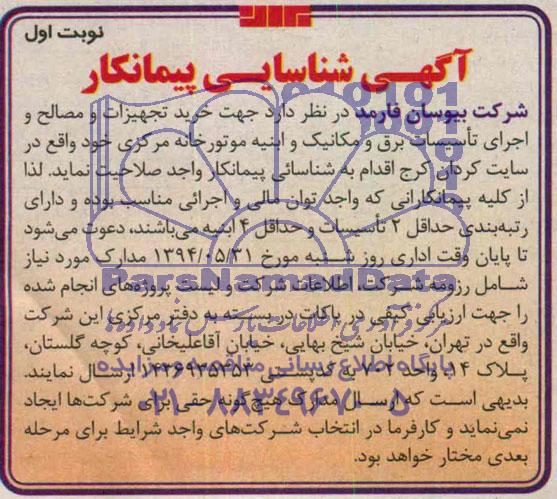 نوبت اول
آگهی شناسایی پیمانکار
شرکت بیوسان فارمد در نظر دارد جهت خرید تجهیزات و مصالح و
اجرای تأسیسات برق و مکانیک و ابنیه موتورخانه مرکزی خود واقع در
سایت کردان کرج اقدام به شناسائی پیمانکار واجد صلاحیت نماید. لذا
از کلیه پیمانکارانی که واجد توان مالی و اجرائی مناسب بوده و دارای
رتبه‌بندی حداقل ۲ تأسیسات و حداقل ۴ ابنیه می‌باشند، دعوت می‌شود
تا پایان وقت اداری روز شنبه مورخ ۱۳۹۴/۰۵/۳۱ مدارک مورد نیاز
شامل رزومه شرکت، اطلاعات شرکت و لیست پروژه‌های انجام شده
را جهت ارزیابی کیفی در پاکات دربسته به دفتر مرکزی این شرکت
واقع در تهران، خیابان شیخ بهایی، خیابان آقاعلیخانی، کوچه گلستان،
پلاک ۱۴ واحد ۲-۷ با کدپستی ارسال نمایند.
بدیهی است که ارسال مدارک هیچ‌گونه حقی برای شرکت‌ها ایجاد
نمی‌نماید و کارفرما در انتخاب شرکت‌های واجد شرایط برای مرحله
بعدی مختار خواهد بود.
ParsNamadData
پایگاه اطلاع رسانی مناقصه و مزایده
۰۲۱-۸۸۳۴۹۶۷۰-۵